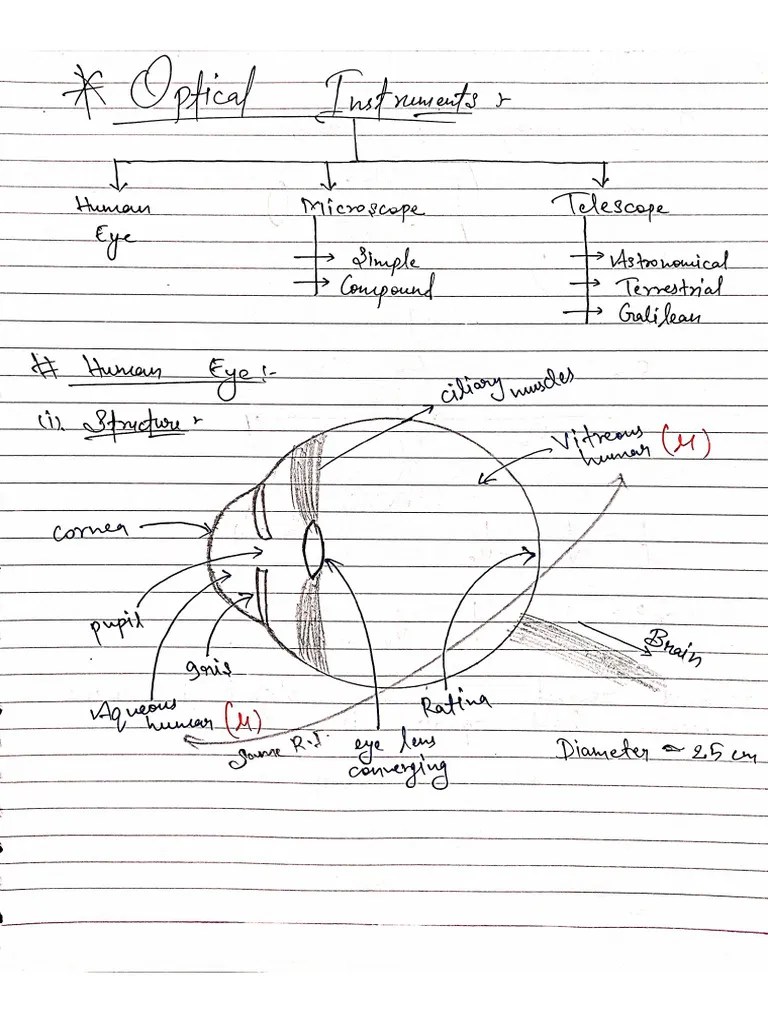 * Optical Instruments :-
Human
Eye
Microscope
Simple
Compound
Telescope
Astronomical
Terrestrial
Galilean
# Human Eye :-
(i). Structure :-
ciliary muscles
Vitreous
humar (μ)
cornea
pupil
Iris
Aqueous
humar (μ)
Same R.I.
eye lens
converging
Ratina
Brain
Diameter ≃ 2.5 cm